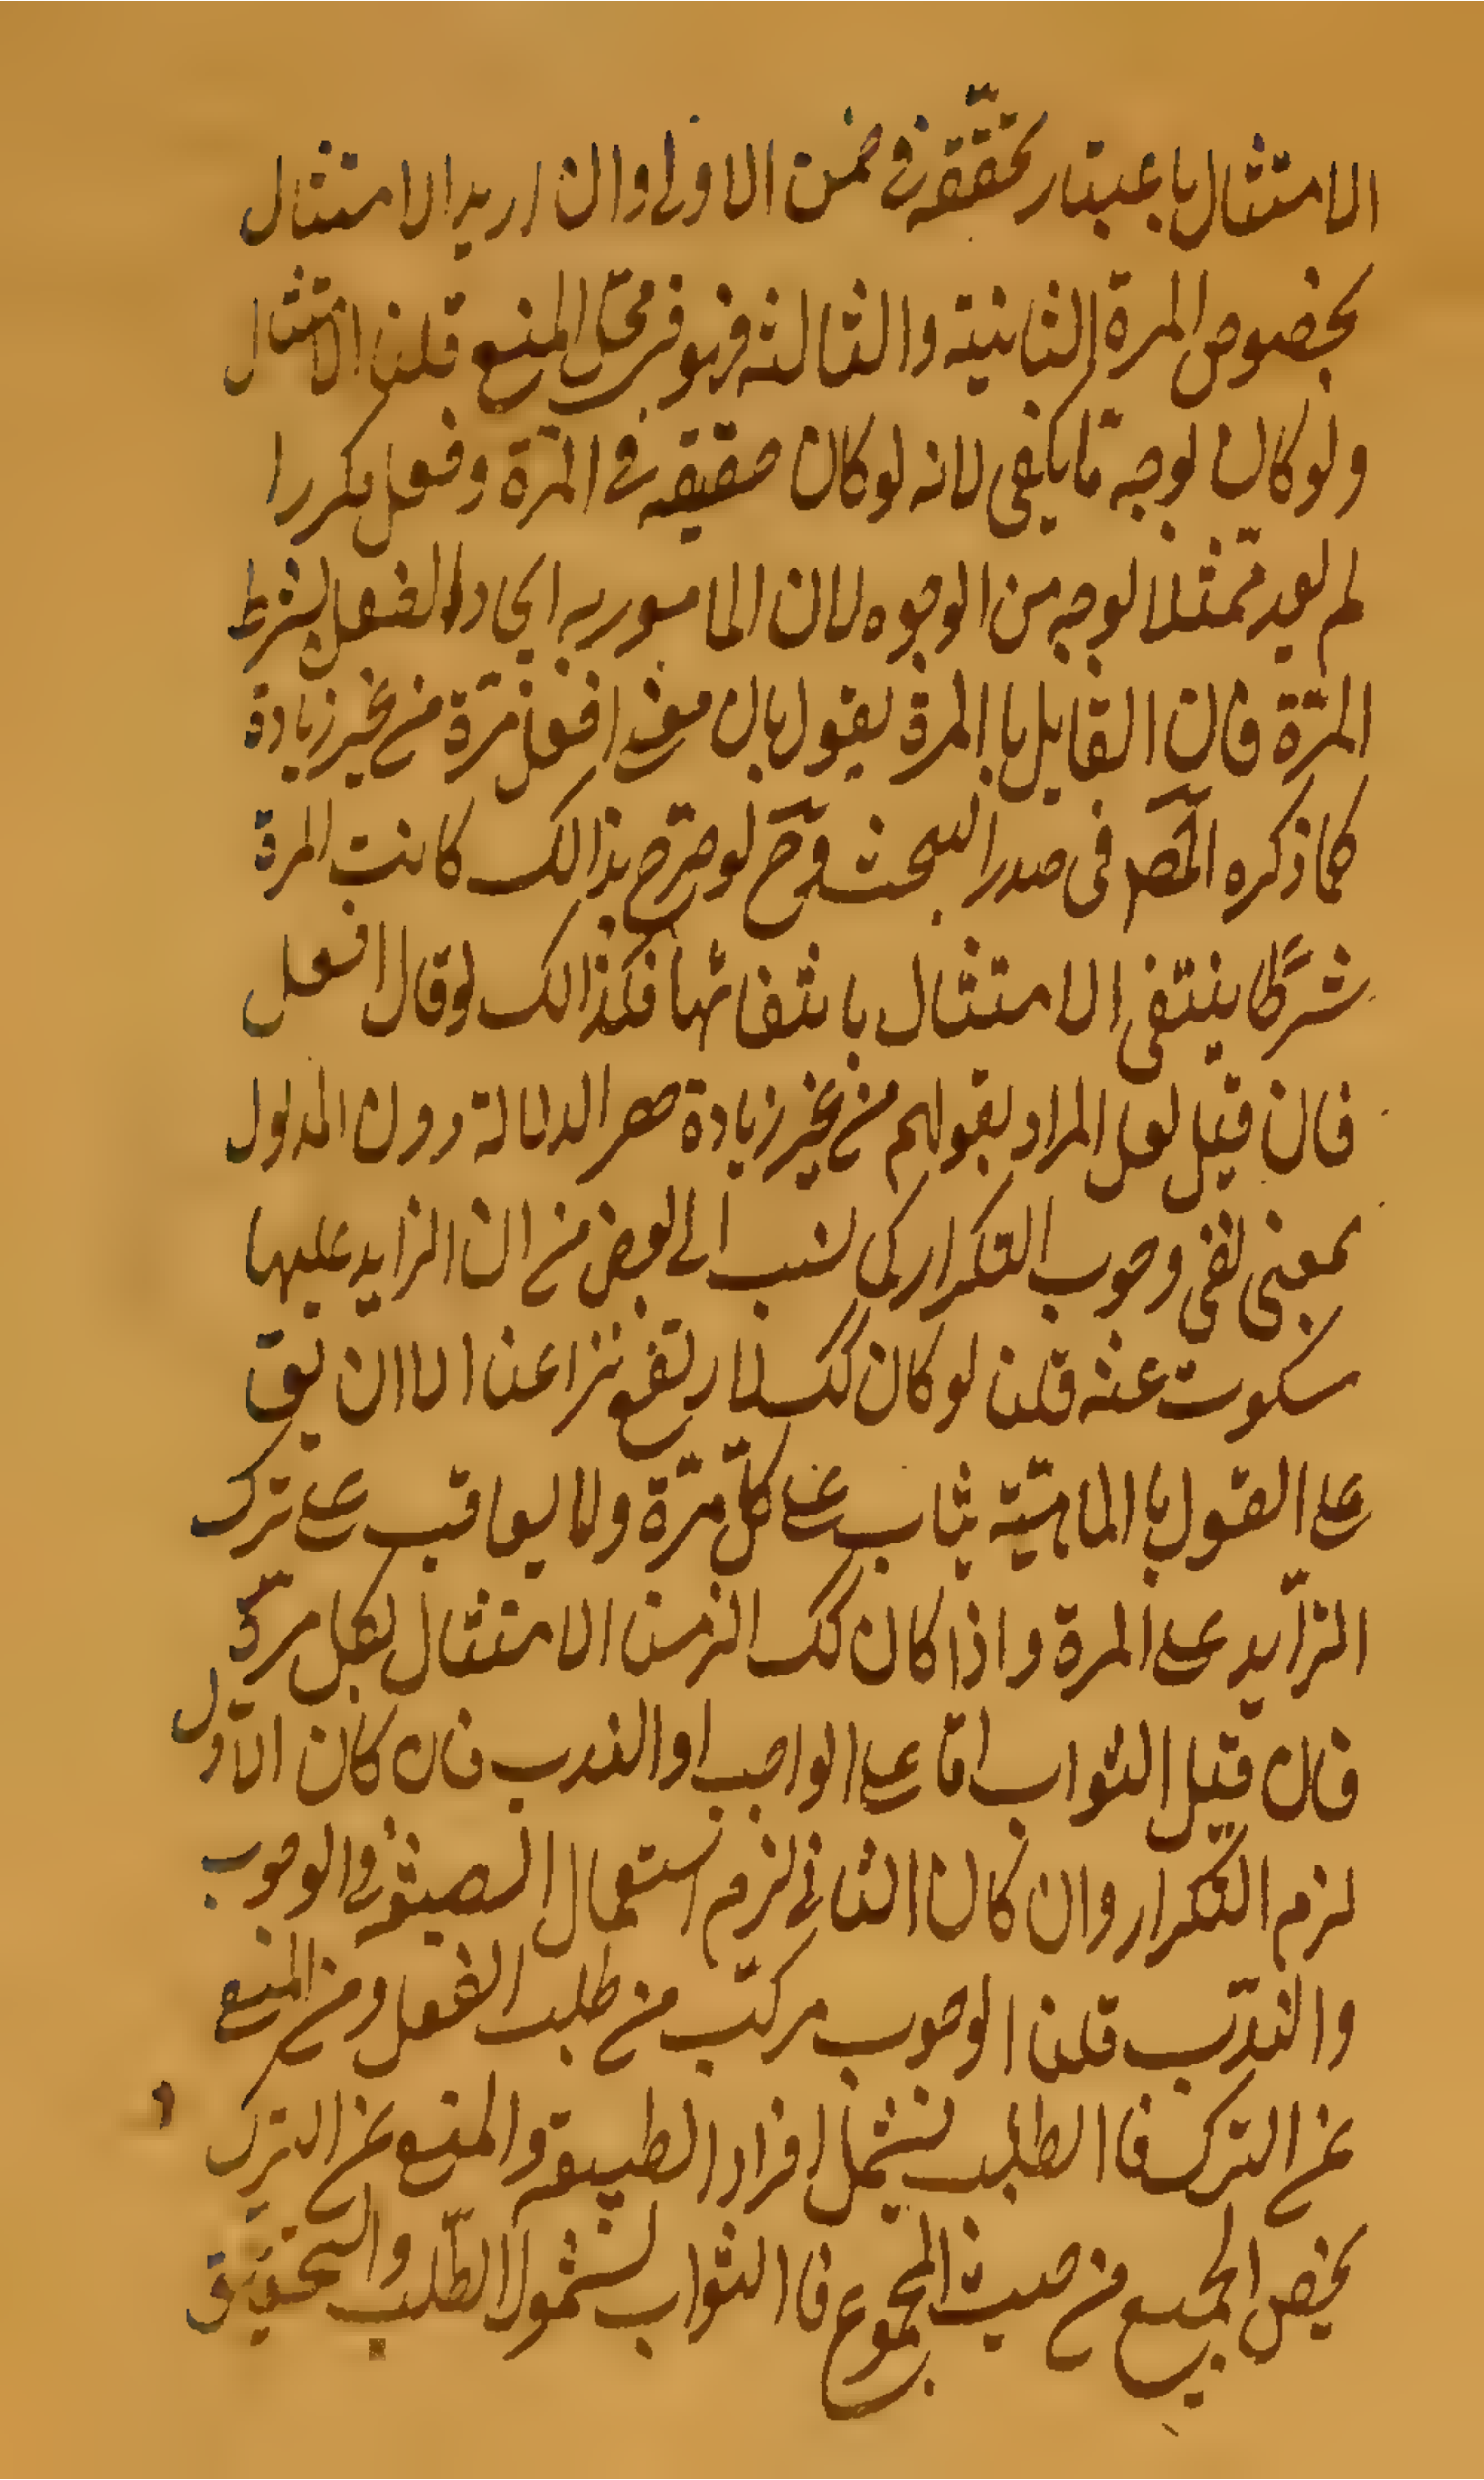 الامتثال باعتبار تحققه في ضمن الاولى وان اريد الامتثال
بخصوص المرة الثانية والثالثه فهو في محل المنع قلنا الامتثال
ولو كان لوجه ما يكفى لانه لو كان حقيقه في المرّة وفعل مكررا
لم يعد ممتثلا لوجه من الوجوه لان المامور به ايجاد الفعل بشرط
المرّة فان القايل باالمرة يقول بان معنى افعل مرّة من غير زيادة
كما ذكره المص في صدر البحث وح لو صرّح بذالك كانت المرة
شرطا ينتفى الامتثال بانتفائها فكذالك لو قال افعل
فان قيل لعل المراد بقولهم من غير زيادة حصر الدلالة دون المدلول
بمعنى نفى وجوب التكرار كما نسب الى بعض من ان الزايد عليها
سكوت عنه قلنا لو كان كك لارتفع نزاعنا الا ان يق
على القول باالماهيّة يثاب على كلّ مرّة ولا يعاقب على ترك
الزّايد على المرة واذا كان كك الزمنا الامتثال بكل مرّة
فان قيل الثواب امّا على الواجب او الندب فان كان الاوّل
لزم التكرار وان كان الثاني لزم استعمال الصيغة في الوجوب
والندب قلنا الوجوب مركّب من طلب الفعل ومن المنع
عن الترك فاالطلب يشمل افراد الطبيعة والمنع عن الترك
يخص الجميع من حيث المجموع فاالثواب لشمول الطّلب والتحقيق